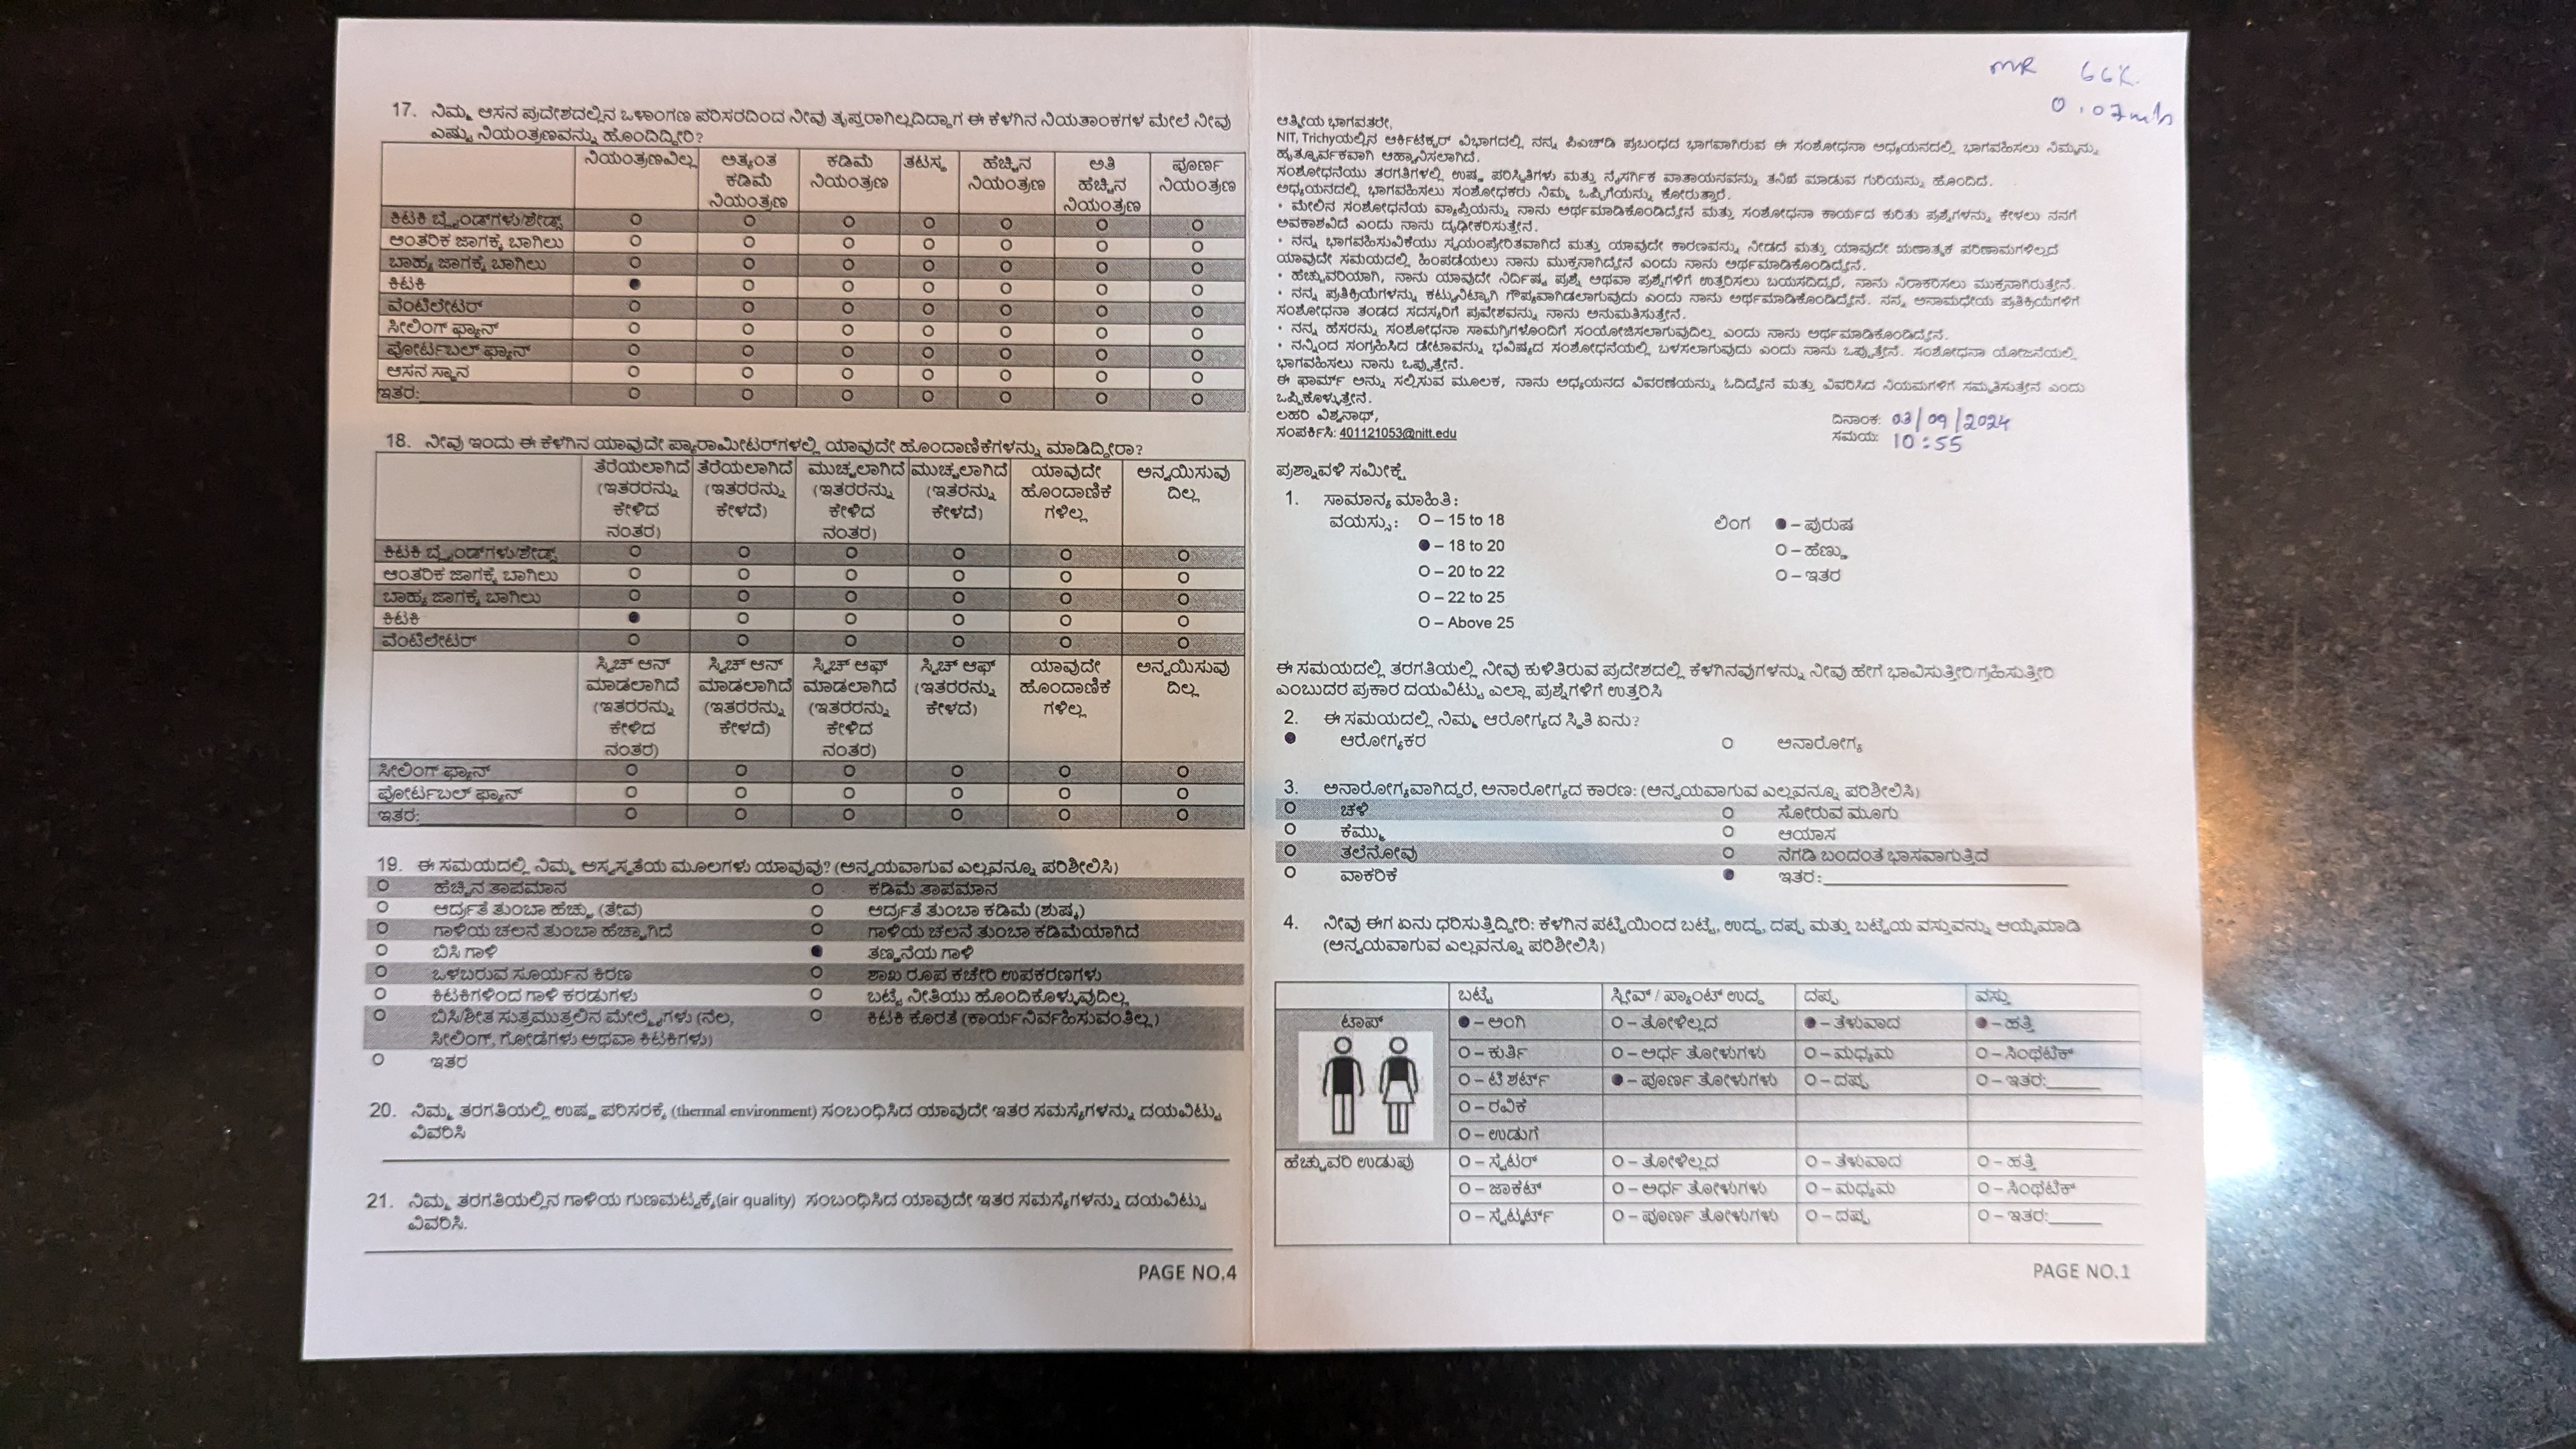 17. ನಿಮ್ಮ ಆಸನ ಪ್ರದೇಶದಲ್ಲಿನ ಒಳಾಂಗಣ ಪರಿಸರದಿಂದ ನೀವು ತೃಪ್ತರಾಗಿಲ್ಲದಿದ್ದಾಗ ಈ ಕೆಳಗಿನ ನಿಯತಾಂಕಗಳ ಮೇಲೆ ನೀವು
ಎಷ್ಟು ನಿಯಂತ್ರಣವನ್ನು ಹೊಂದಿದ್ದೀರಿ?
ನಿಯಂತ್ರಣವಿಲ್ಲ ಅತ್ಯಂತ ಕಡಿಮೆ ನಿಯಂತ್ರಣ ಕಡಿಮೆ ನಿಯಂತ್ರಣ ತಟಸ್ಥ ಹೆಚ್ಚಿನ ನಿಯಂತ್ರಣ ಅತಿ ಹೆಚ್ಚಿನ ನಿಯಂತ್ರಣ ಪೂರ್ಣ ನಿಯಂತ್ರಣ
ಕಿಟಕಿ ಬ್ಲೈಂಡ್‌ಗಳು/ಶೇಡ್ಸ್ O O O O O O O
ಆಂತರಿಕ ಜಾಗಕ್ಕೆ ಬಾಗಿಲು O O O O O O O
ಬಾಹ್ಯ ಜಾಗಕ್ಕೆ ಬಾಗಿಲು O O O O O O O
ಕಿಟಕಿ ● O O O O O O
ವೆಂಟಿಲೇಟರ್ O O O O O O O
ಸೀಲಿಂಗ್ ಫ್ಯಾನ್ O O O O O O O
ಪೋರ್ಟಬಲ್ ಫ್ಯಾನ್ O O O O O O O
ಆಸನ ಸ್ಥಾನ O O O O O O O
ಇತರ:__________ O O O O O O O
18. ನೀವು ಇಂದು ಈ ಕೆಳಗಿನ ಯಾವುದೇ ಪ್ಯಾರಾಮೀಟರ್‌ಗಳಲ್ಲಿ ಯಾವುದೇ ಹೊಂದಾಣಿಕೆಗಳನ್ನು ಮಾಡಿದ್ದೀರಾ?
ತೆರೆಯಲಾಗಿದೆ (ಇತರರನ್ನು ಕೇಳಿದ ನಂತರ) ತೆರೆಯಲಾಗಿದೆ (ಇತರರನ್ನು ಕೇಳದೆ) ಮುಚ್ಚಲಾಗಿದೆ (ಇತರರನ್ನು ಕೇಳಿದ ನಂತರ) ಮುಚ್ಚಲಾಗಿದೆ (ಇತರರನ್ನು ಕೇಳದೆ) ಯಾವುದೇ ಹೊಂದಾಣಿಕೆಗಳಿಲ್ಲ ಅನ್ವಯಿಸುವುದಿಲ್ಲ
ಕಿಟಕಿ ಬ್ಲೈಂಡ್‌ಗಳು/ಶೇಡ್ಸ್ O O O O O O
ಆಂತರಿಕ ಜಾಗಕ್ಕೆ ಬಾಗಿಲು O O O O O O
ಬಾಹ್ಯ ಜಾಗಕ್ಕೆ ಬಾಗಿಲು O O O O O O
ಕಿಟಕಿ ● O O O O O
ವೆಂಟಿಲೇಟರ್ O O O O O O
ಸ್ವಿಚ್ ಆನ್ ಮಾಡಲಾಗಿದೆ (ಇತರರನ್ನು ಕೇಳಿದ ನಂತರ) ಸ್ವಿಚ್ ಆನ್ ಮಾಡಲಾಗಿದೆ (ಇತರರನ್ನು ಕೇಳದೆ) ಸ್ವಿಚ್ ಆಫ್ ಮಾಡಲಾಗಿದೆ (ಇತರರನ್ನು ಕೇಳಿದ ನಂತರ) ಸ್ವಿಚ್ ಆಫ್ (ಇತರರನ್ನು ಕೇಳದೆ) ಯಾವುದೇ ಹೊಂದಾಣಿಕೆಗಳಿಲ್ಲ ಅನ್ವಯಿಸುವುದಿಲ್ಲ
ಸೀಲಿಂಗ್ ಫ್ಯಾನ್ O O O O O O
ಪೋರ್ಟಬಲ್ ಫ್ಯಾನ್ O O O O O O
ಇತರ:__________ O O O O O O
19. ಈ ಸಮಯದಲ್ಲಿ ನಿಮ್ಮ ಅಸ್ವಸ್ಥತೆಯ ಮೂಲಗಳು ಯಾವುವು? (ಅನ್ವಯವಾಗುವ ಎಲ್ಲವನ್ನೂ ಪರಿಶೀಲಿಸಿ)
O ಹೆಚ್ಚಿನ ತಾಪಮಾನ O ಕಡಿಮೆ ತಾಪಮಾನ
O ಆರ್ದ್ರತೆ ತುಂಬಾ ಹೆಚ್ಚು (ತೇವ) O ಆರ್ದ್ರತೆ ತುಂಬಾ ಕಡಿಮೆ (ಶುಷ್ಕ)
O ಗಾಳಿಯ ಚಲನೆ ತುಂಬಾ ಹೆಚ್ಚಾಗಿದೆ O ಗಾಳಿಯ ಚಲನೆ ತುಂಬಾ ಕಡಿಮೆಯಾಗಿದೆ
O ಬಿಸಿ ಗಾಳಿ ● ತಣ್ಣನೆಯ ಗಾಳಿ
O ಒಳಬರುವ ಸೂರ್ಯನ ಕಿರಣ O ಶಾಖ ರೂಪ ಕಚೇರಿ ಉಪಕರಣಗಳು
O ಕಿಟಕಿಗಳಿಂದ ಗಾಳಿ ಕರಡುಗಳು O ಬಟ್ಟೆ ನೀತಿಯು ಹೊಂದಿಕೊಳ್ಳುವುದಿಲ್ಲ
O ಬಿಸಿ/ಶೀತ ಸುತ್ತಮುತ್ತಲಿನ ಮೇಲ್ಮೈಗಳು (ನೆಲ, O ಕಿಟಕಿ ಕೊರತೆ (ಕಾರ್ಯನಿರ್ವಹಿಸುವಂತಿಲ್ಲ)
ಸೀಲಿಂಗ್, ಗೋಡೆಗಳು ಅಥವಾ ಕಿಟಕಿಗಳು)
O ಇತರ
20. ನಿಮ್ಮ ತರಗತಿಯಲ್ಲಿ ಉಷ್ಣ ಪರಿಸರಕ್ಕೆ (thermal environment) ಸಂಬಂಧಿಸಿದ ಯಾವುದೇ ಇತರ ಸಮಸ್ಯೆಗಳನ್ನು ದಯವಿಟ್ಟು
ವಿವರಿಸಿ
21. ನಿಮ್ಮ ತರಗತಿಯಲ್ಲಿನ ಗಾಳಿಯ ಗುಣಮಟ್ಟಕ್ಕೆ(air quality) ಸಂಬಂಧಿಸಿದ ಯಾವುದೇ ಇತರ ಸಮಸ್ಯೆಗಳನ್ನು ದಯವಿಟ್ಟು
ವಿವರಿಸಿ.
PAGE NO.4
MR 66%
0.07 m/s
ಆತ್ಮೀಯ ಭಾಗವತರೇ,
NIT, Trichyಯಲ್ಲಿನ ಆರ್ಕಿಟೆಕ್ಚರ್ ವಿಭಾಗದಲ್ಲಿ ನನ್ನ ಪಿಎಚ್‌ಡಿ ಪ್ರಬಂಧದ ಭಾಗವಾಗಿರುವ ಈ ಸಂಶೋಧನಾ ಅಧ್ಯಯನದಲ್ಲಿ ಭಾಗವಹಿಸಲು ನಿಮ್ಮನ್ನು
ಹೃತ್ಪೂರ್ವಕವಾಗಿ ಆಹ್ವಾನಿಸಲಾಗಿದೆ.
ಸಂಶೋಧನೆಯು ತರಗತಿಗಳಲ್ಲಿ ಉಷ್ಣ ಪರಿಸ್ಥಿತಿಗಳು ಮತ್ತು ನೈಸರ್ಗಿಕ ವಾತಾಯನವನ್ನು ತನಿಖೆ ಮಾಡುವ ಗುರಿಯನ್ನು ಹೊಂದಿದೆ.
ಅಧ್ಯಯನದಲ್ಲಿ ಭಾಗವಹಿಸಲು ಸಂಶೋಧಕರು ನಿಮ್ಮ ಒಪ್ಪಿಗೆಯನ್ನು ಕೋರುತ್ತಾರೆ.
• ಮೇಲಿನ ಸಂಶೋಧನೆಯ ವ್ಯಾಪ್ತಿಯನ್ನು ನಾನು ಅರ್ಥಮಾಡಿಕೊಂಡಿದ್ದೇನೆ ಮತ್ತು ಸಂಶೋಧನಾ ಕಾರ್ಯದ ಕುರಿತು ಪ್ರಶ್ನೆಗಳನ್ನು ಕೇಳಲು ನನಗೆ
ಅವಕಾಶವಿದೆ ಎಂದು ನಾನು ದೃಢೀಕರಿಸುತ್ತೇನೆ.
• ನನ್ನ ಭಾಗವಹಿಸುವಿಕೆಯು ಸ್ವಯಂಪ್ರೇರಿತವಾಗಿದೆ ಮತ್ತು ಯಾವುದೇ ಕಾರಣವನ್ನು ನೀಡದೆ ಮತ್ತು ಯಾವುದೇ ಋಣಾತ್ಮಕ ಪರಿಣಾಮಗಳಿಲ್ಲದೆ
ಯಾವುದೇ ಸಮಯದಲ್ಲಿ ಹಿಂಪಡೆಯಲು ನಾನು ಮುಕ್ತನಾಗಿದ್ದೇನೆ ಎಂದು ನಾನು ಅರ್ಥಮಾಡಿಕೊಂಡಿದ್ದೇನೆ.
• ಹೆಚ್ಚುವರಿಯಾಗಿ, ನಾನು ಯಾವುದೇ ನಿರ್ದಿಷ್ಟ ಪ್ರಶ್ನೆ ಅಥವಾ ಪ್ರಶ್ನೆಗಳಿಗೆ ಉತ್ತರಿಸಲು ಬಯಸದಿದ್ದರೆ, ನಾನು ನಿರಾಕರಿಸಲು ಮುಕ್ತನಾಗಿರುತ್ತೇನೆ.
• ನನ್ನ ಪ್ರತಿಕ್ರಿಯೆಗಳನ್ನು ಕಟ್ಟುನಿಟ್ಟಾಗಿ ಗೌಪ್ಯವಾಗಿಡಲಾಗುವುದು ಎಂದು ನಾನು ಅರ್ಥಮಾಡಿಕೊಂಡಿದ್ದೇನೆ. ನನ್ನ ಅನಾಮಧೇಯ ಪ್ರತಿಕ್ರಿಯೆಗಳಿಗೆ
ಸಂಶೋಧನಾ ತಂಡದ ಸದಸ್ಯರಿಗೆ ಪ್ರವೇಶವನ್ನು ನಾನು ಅನುಮತಿಸುತ್ತೇನೆ.
• ನನ್ನ ಹೆಸರನ್ನು ಸಂಶೋಧನಾ ಸಾಮಗ್ರಿಗಳೊಂದಿಗೆ ಸಂಯೋಜಿಸಲಾಗುವುದಿಲ್ಲ ಎಂದು ನಾನು ಅರ್ಥಮಾಡಿಕೊಂಡಿದ್ದೇನೆ.
• ನನ್ನಿಂದ ಸಂಗ್ರಹಿಸಿದ ಡೇಟಾವನ್ನು ಭವಿಷ್ಯದ ಸಂಶೋಧನೆಯಲ್ಲಿ ಬಳಸಲಾಗುವುದು ಎಂದು ನಾನು ಒಪ್ಪುತ್ತೇನೆ. ಸಂಶೋಧನಾ ಯೋಜನೆಯಲ್ಲಿ
ಭಾಗವಹಿಸಲು ನಾನು ಒಪ್ಪುತ್ತೇನೆ.
ಈ ಫಾರ್ಮ್ ಅನ್ನು ಸಲ್ಲಿಸುವ ಮೂಲಕ, ನಾನು ಅಧ್ಯಯನದ ವಿವರಣೆಯನ್ನು ಓದಿದ್ದೇನೆ ಮತ್ತು ವಿವರಿಸಿದ ನಿಯಮಗಳಿಗೆ ಸಮ್ಮತಿಸುತ್ತೇನೆ ಎಂದು
ಒಪ್ಪಿಕೊಳ್ಳುತ್ತೇನೆ.
ಲಹರಿ ವಿಶ್ವನಾಥ್,
ಸಂಪರ್ಕಿಸಿ: 401121053@nitt.edu
ದಿನಾಂಕ: 03/09/2024
ಸಮಯ: 10:55
ಪ್ರಶ್ನಾವಳಿ ಸಮೀಕ್ಷೆ
1. ಸಾಮಾನ್ಯ ಮಾಹಿತಿ:
ವಯಸ್ಸು: O – 15 to 18 ಲಿಂಗ ● – ಪುರುಷ
● – 18 to 20 O – ಹೆಣ್ಣು
O – 20 to 22 O – ಇತರ
O – 22 to 25
O – Above 25
ಈ ಸಮಯದಲ್ಲಿ ತರಗತಿಯಲ್ಲಿ ನೀವು ಕುಳಿತಿರುವ ಪ್ರದೇಶದಲ್ಲಿ ಕೆಳಗಿನವುಗಳನ್ನು ನೀವು ಹೇಗೆ ಭಾವಿಸುತ್ತೀರಿ/ಗ್ರಹಿಸುತ್ತೀರಿ
ಎಂಬುದರ ಪ್ರಕಾರ ದಯವಿಟ್ಟು ಎಲ್ಲಾ ಪ್ರಶ್ನೆಗಳಿಗೆ ಉತ್ತರಿಸಿ
2. ಈ ಸಮಯದಲ್ಲಿ ನಿಮ್ಮ ಆರೋಗ್ಯದ ಸ್ಥಿತಿ ಏನು?
● ಆರೋಗ್ಯಕರ O ಅನಾರೋಗ್ಯ
3. ಅನಾರೋಗ್ಯವಾಗಿದ್ದರೆ, ಅನಾರೋಗ್ಯದ ಕಾರಣ: (ಅನ್ವಯವಾಗುವ ಎಲ್ಲವನ್ನೂ ಪರಿಶೀಲಿಸಿ)
O ಚಳಿ O ಸೋರುವ ಮೂಗು
O ಕೆಮ್ಮು O ಆಯಾಸ
O ತಲೆನೋವು O ನೆಗಡಿ ಬಂದಂತೆ ಭಾಸವಾಗುತ್ತಿದೆ
O ವಾಕರಿಕೆ ● ಇತರ:__________
4. ನೀವು ಈಗ ಏನು ಧರಿಸುತ್ತಿದ್ದೀರಿ: ಕೆಳಗಿನ ಪಟ್ಟಿಯಿಂದ ಬಟ್ಟೆ, ಉದ್ದ, ದಪ್ಪ ಮತ್ತು ಬಟ್ಟೆಯ ವಸ್ತುವನ್ನು ಆಯ್ಕೆಮಾಡಿ
(ಅನ್ವಯವಾಗುವ ಎಲ್ಲವನ್ನೂ ಪರಿಶೀಲಿಸಿ)
ಬಟ್ಟೆ ಸ್ಲೀವ್ / ಪ್ಯಾಂಟ್ ಉದ್ದ ದಪ್ಪ ವಸ್ತು
ಟಾಪ್ ● – ಅಂಗಿ O – ತೋಳಿಲ್ಲದ ● – ತೆಳುವಾದ ● – ಹತ್ತಿ
O – ಕುರ್ತಿ O – ಅರ್ಧ ತೋಳುಗಳು O – ಮಧ್ಯಮ O – ಸಿಂಥೆಟಿಕ್
O – ಟಿ ಶರ್ಟ್ ● – ಪೂರ್ಣ ತೋಳುಗಳು O – ದಪ್ಪ O – ಇತರ:_____
O – ರವಿಕೆ
O – ಉಡುಗೆ
ಹೆಚ್ಚುವರಿ ಉಡುಪು O – ಸ್ವೆಟರ್ O – ತೋಳಿಲ್ಲದ O – ತೆಳುವಾದ O – ಹತ್ತಿ
O – ಜಾಕೆಟ್ O – ಅರ್ಧ ತೋಳುಗಳು O – ಮಧ್ಯಮ O – ಸಿಂಥೆಟಿಕ್
O – ಸ್ವೆಟ್ಶರ್ಟ್ O – ಪೂರ್ಣ ತೋಳುಗಳು O – ದಪ್ಪ O – ಇತರ:_____
PAGE NO.1